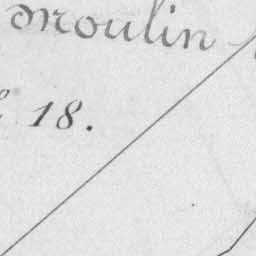 Moulin
18.